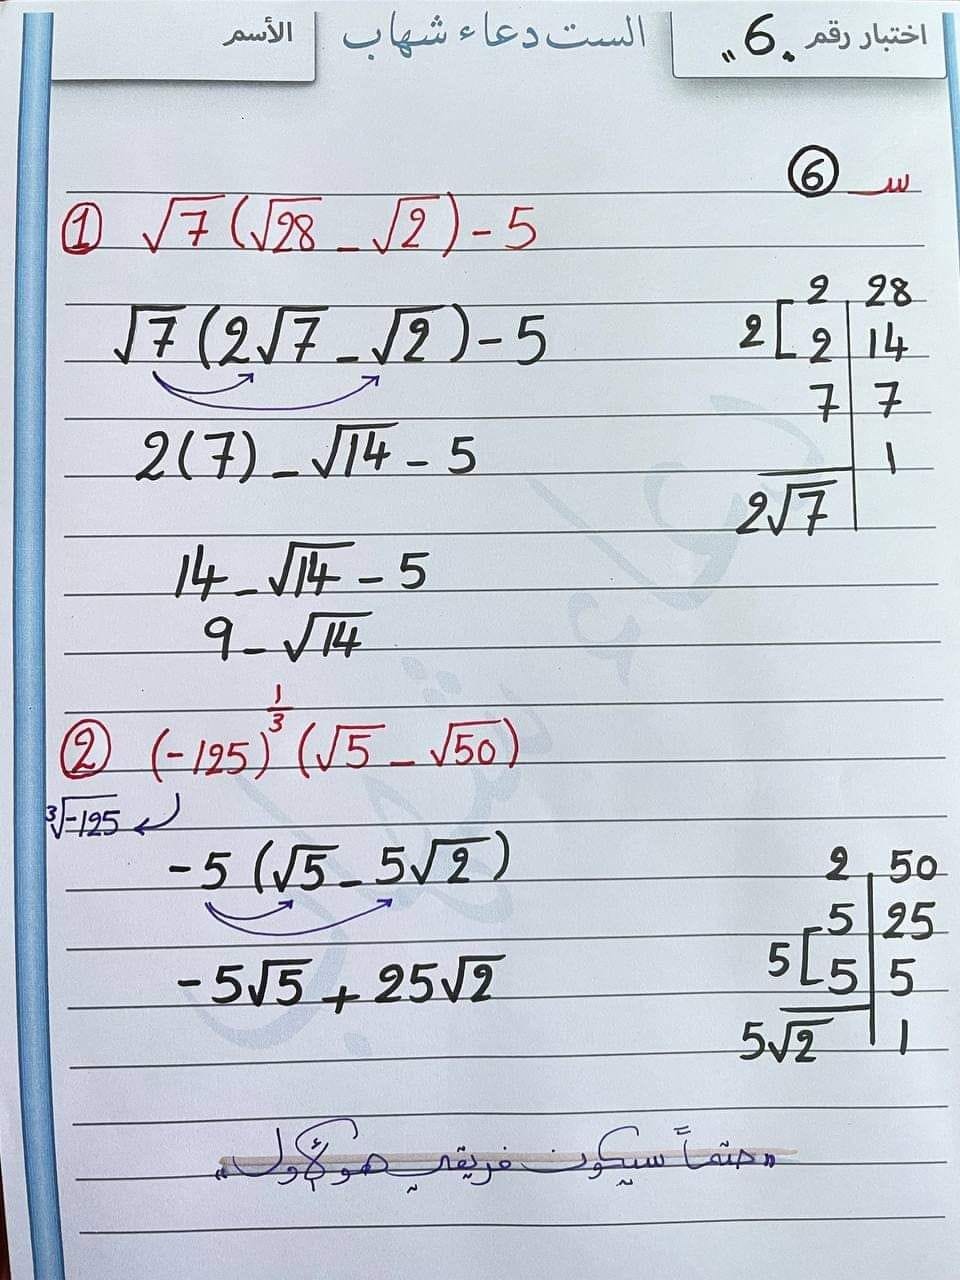 اختبار رقم "6"
الست دعاء شهاب
الأسم
س 6
① √7 (√28 - √2) - 5
√7 (2√7 - √2) - 5
2(7) - √14 - 5
14 - √14 - 5
9 - √14
2 | 28
2 [ 2 | 14
7 | 7
| 1
2√7
② (-125)^(1/3) (√5 - √50)
∛-125
-5 (√5 - 5√2)
-5√5 + 25√2
2 | 50
5 | 25
5 [ 5 | 5
5√2 | 1
"حتماً سيكون فريقي هو الأول"